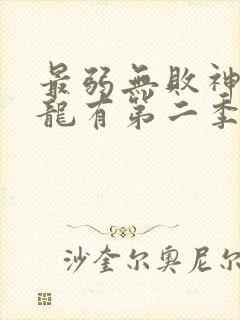 最弱無敗神
龍有第二季
沙奎尔奥尼尔